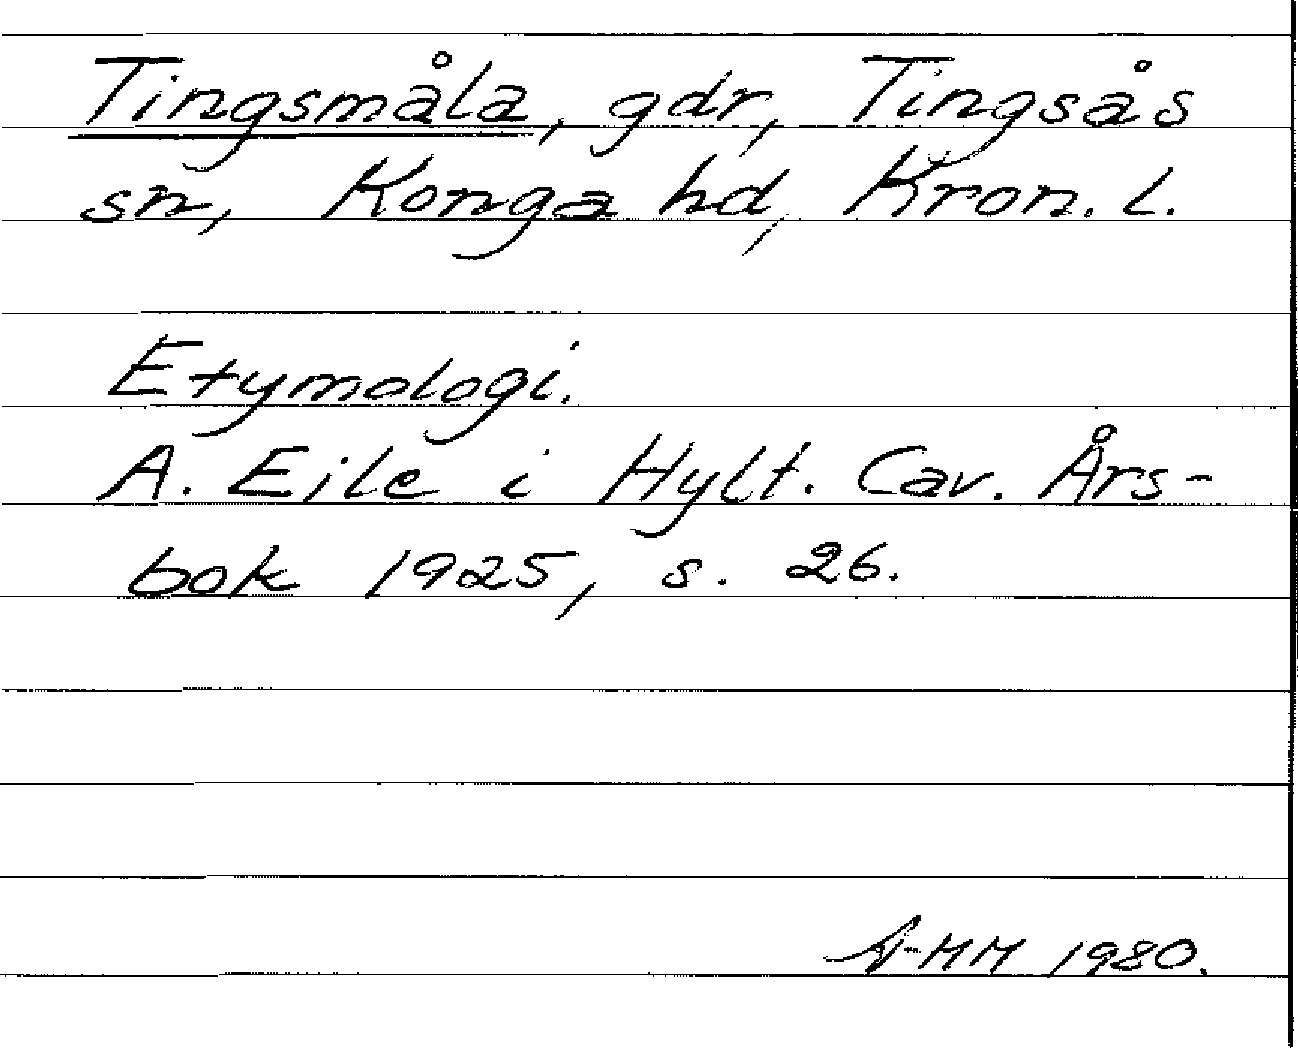 Tingsmåla, gdr, Tingsås
sn, Konga hd, Kron. l.
Etymologi.
A. Ejle i Hylt. Cav. Års-
bok 1925, s. 26.
1980.